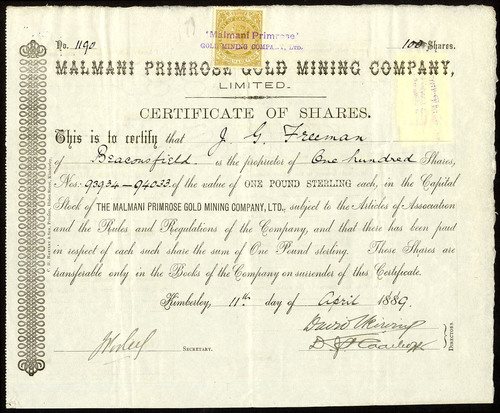 No. 1190
100 Shares.
'Malmani Primrose'
GOLD MINING COMPANY, LTD.
MALMANI PRIMROSE GOLD MINING COMPANY,
LIMITED.
CERTIFICATE OF SHARES.
This is to certify that J. G. Freeman
of Beaconsfield is the proprietor of One hundred Shares,
Nos. 93934-94033 of the value of ONE POUND STERLING each, in the Capital
Stock of THE MALMANI PRIMROSE GOLD MINING COMPANY, LTD., subject to the Articles of Association
and the Rules and Regulations of the Company, and that there has been paid
in respect of each such share the sum of One Pound sterling. These Shares are
transferable only in the Books of the Company on surrender of this Certificate.
Kimberley, 11th day of April 1889.
David
SECRETARY.
DIRECTORS.